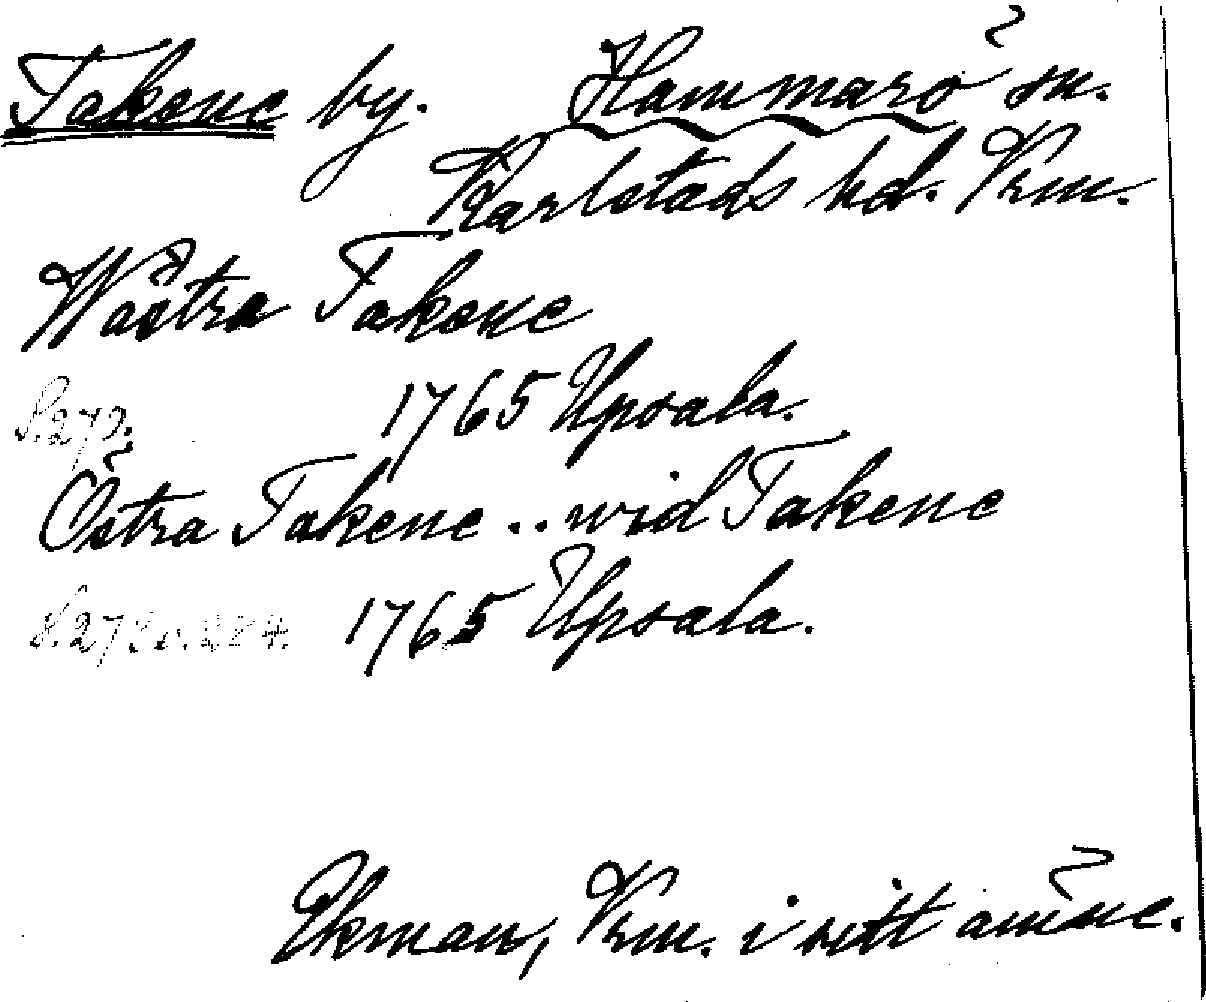 Takene by. Hammarö sn.
Karlstads hd. Vrm.
Wästra Takene
S. 272. 1765 Upsala.
Östra Takene .. wid Takene
1765 Upsala.
Ekman, Vrm. i sitt ämne.